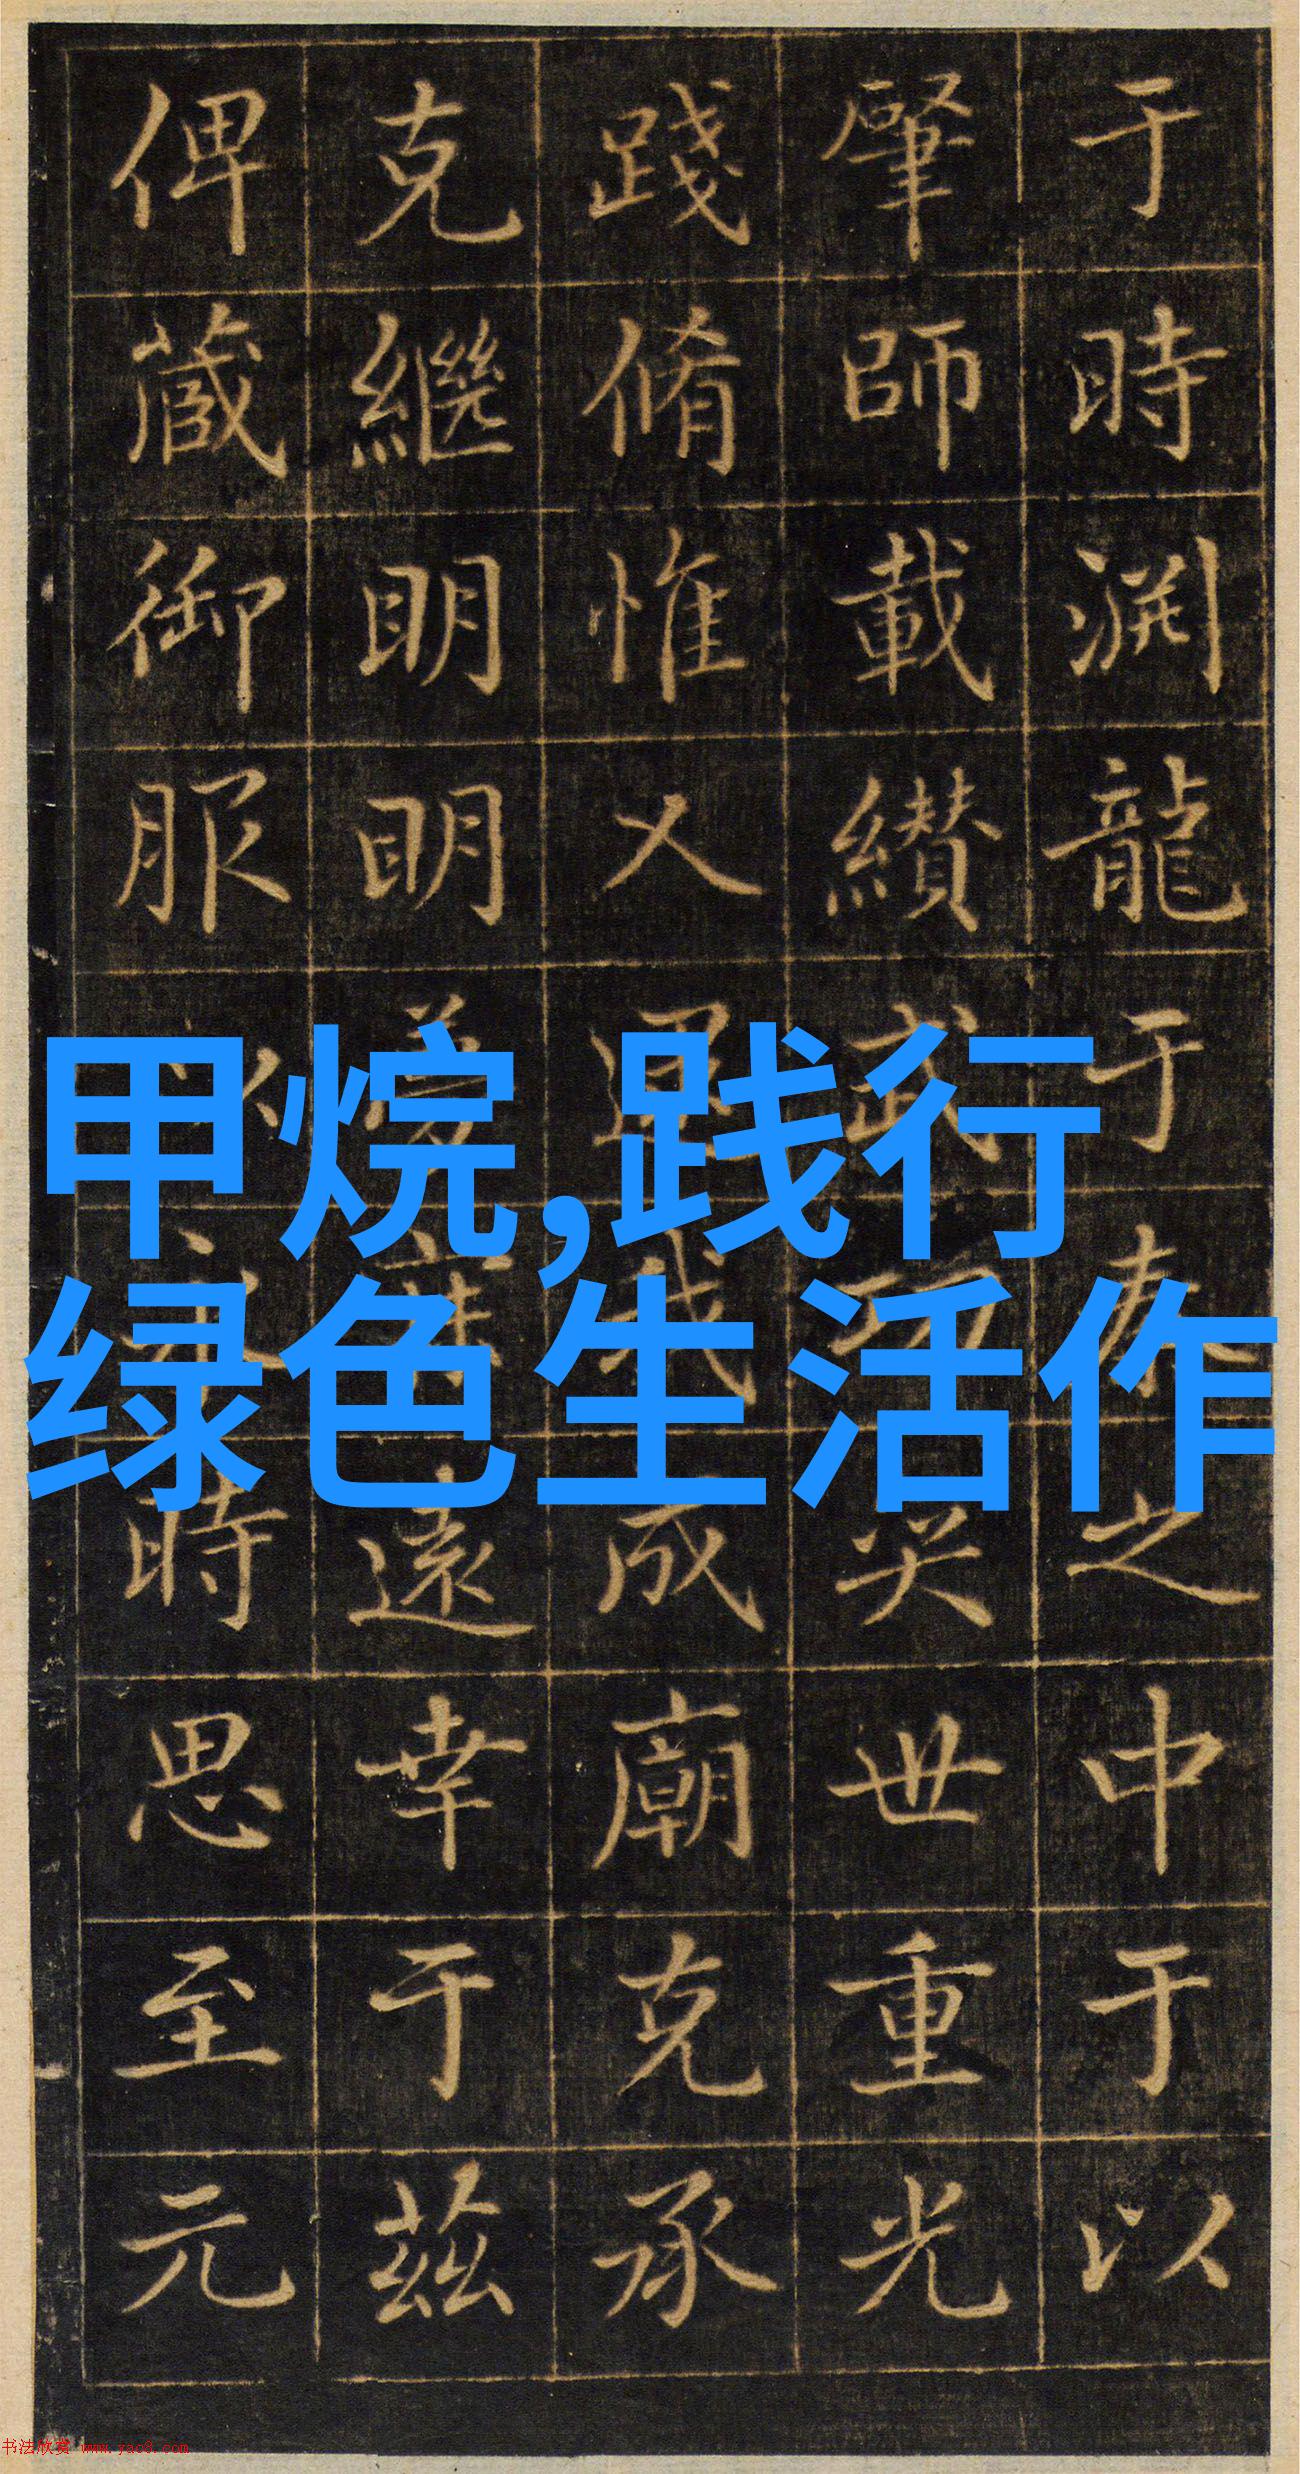 于時渕龍于之中于以
肇師載纘武功奕世重光
踐脩惟乂我成廟克承
克繼明明遠幸于茲
俾蕆御服時思至元
甲烷,践行
绿色生活作
书法欣赏 www.yac8.com